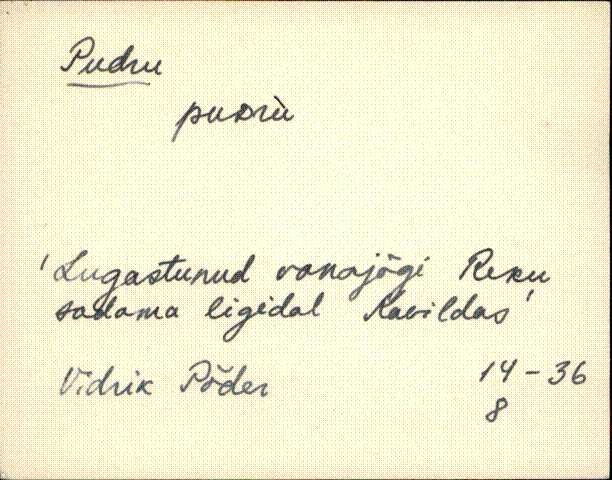 Pudru
puDrù
'Lugastunud vanajõgi Reku
sadama ligidal Kavildas'
Vidrik Põder 14-36
8